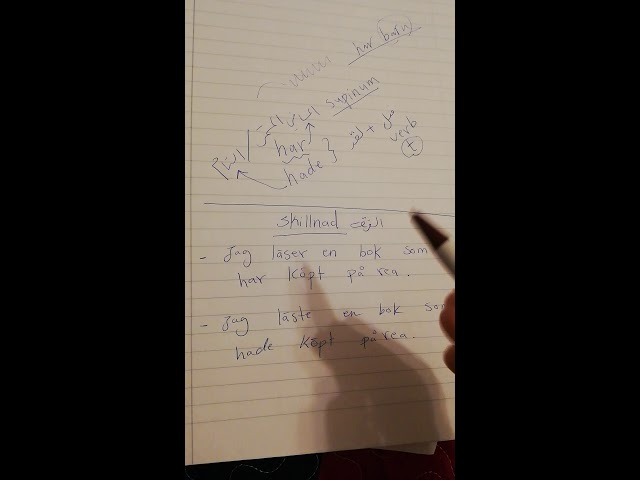 har barn
supinum
har
hade
فعل +
verb
t
skillnad الفرق
- Jag läser en bok som
har köpt på rea.
- Jag läste en bok som
hade köpt på rea.